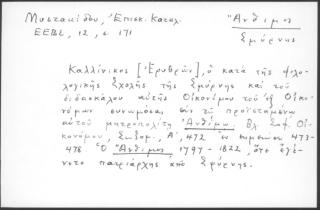 Μυστακίδου, Ἐπισκ. Κατάλ.
ΕΕΒΣ, 12, σ. 171
Ἄνθιμος
Σμύρνης
Καλλίνικος [Ἐρυθρῶν], ὁ κατὰ τῆς φιλο-
λογικῆς Σχολῆς τῆς Σμύρνης καὶ τοῦ
διδασκάλου αὐτῆς Οἰκονόμου τοῦ ἐξ Οἰκο-
νόμων συνωμόσας ὡς τῷ προϊσταμένῳ
αὐτοῦ μητροπολίτῃ Ἀνθίμῳ. Βλ. Σοφ. Οἰ-
κονόμου, Σωζομ., Α', 472 ἐν σημειώσει 473-
478. Ὁ Ἄνθιμος 1797 - 1822, ὅτε ἐγέ-
νετο πατριάρχης ἀπὸ Σμύρνης.